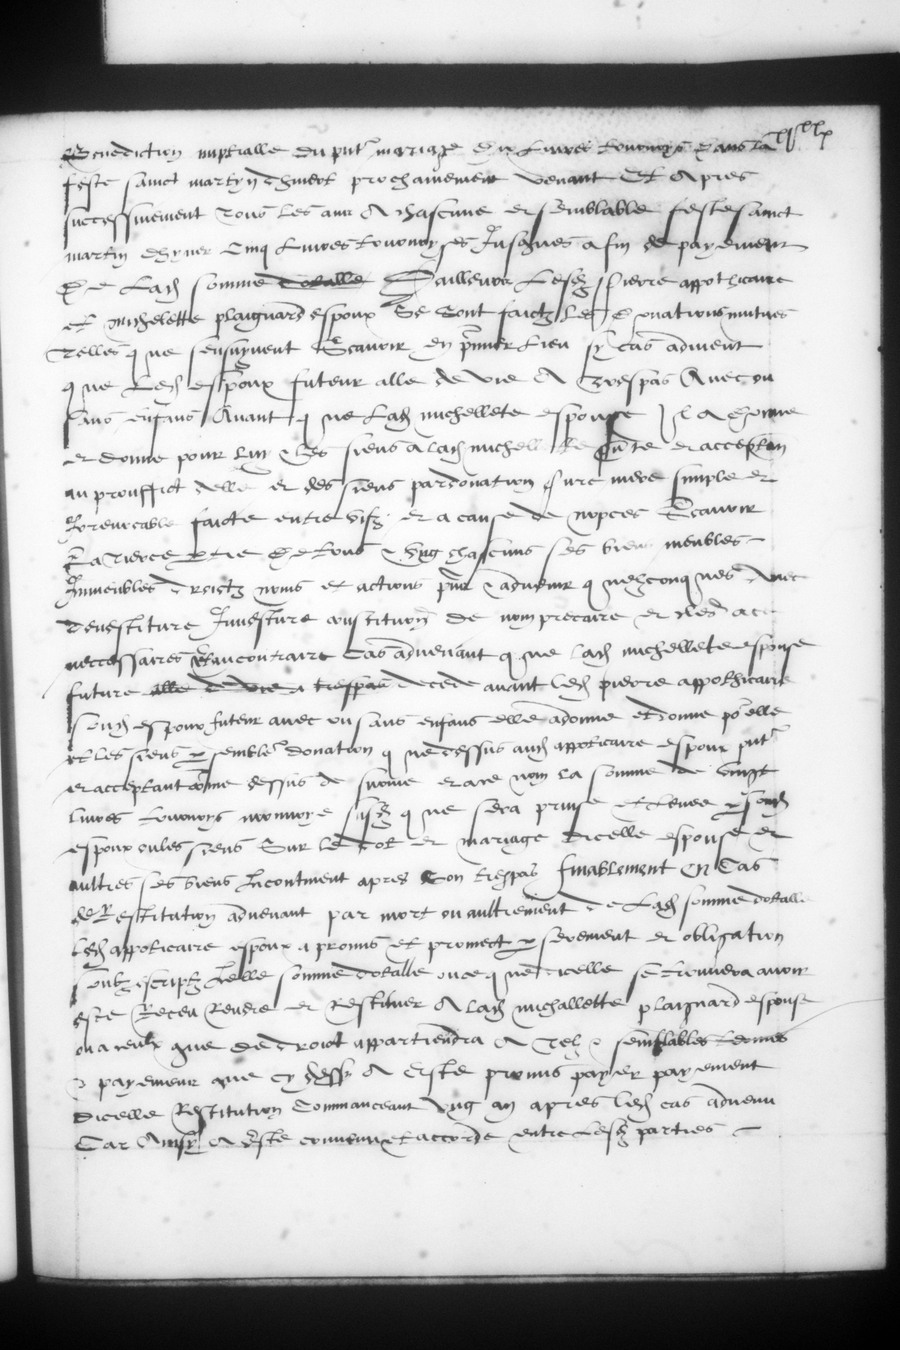 Benediction nuptialle du pnt mariage dix livres tournoys dans la
feste sainct martyn dhivert prochainement venant Et Apres
successivement Tous les ans A chascune et semblable feste sainct
martin dhyver Cinq livres tournoyses Jusques a fin de payement
De Lad somme dotalle Dailleurs Lesd pierre appothicaire
et Michelette plaignard espoux Se sont faictz les donations mutues
Telles que sensuyvent Scavoir en premier lieu sy cas advient
que Led espoux futeur alle de vie A trespas Avec ou
sans enfans Avant que Lad michellete espouse Il a donne
et donne pour luy & les siens a lad michellette pnte et acceptan
au prouffict delle et des siens par donation pure mere simple et
Irrevocable faicte entre vifz et a cause de nopces Scavoir
La Tierce ptie De tous & ung chascuns ses biens meubles
Immeubles droictz noms et actions pns & advenir quelzconques Avec
devestiture Investiture constitution de nom precaire et cles ace
neccessaires Et au contraire Cas advenant que lad michellete espouse
future alle de vie a trespas decede avant led pierre appothicaire
sond espoux futeur avec ou sans enfans elle a donne et donne po elle
et les siens p semble donation que dessus aud appoticaire espoux pnt
et acceptant comme dessus de somme et ace nom la somme de vingt
livres tournoys monnoye susd que sera prinse et levee p sond
espoux ou les siens Sur le dot et mariage dicelle espouse et
aultres ses biens Incontinent apres son trespas finablement En Cas
de Restitution advenant par mort ou aultrement de Lad somme dotalle
Led appoticaire espoux a promis et promect p serement et obligation
soubz escriptz Icelle somme dotalle ou ce que dicelle se trouvera avoir
este Receu Rendre et Restituer A lad michallette plaignard espouse
ou a ceulx que De Droict appartiendra A Telz & semblables termes
& payement que cy dess A este promis payer payement
Dicelle Restitution Commanceant ung an apres led cas advenu
Car Ainsy A este convenu et accorde entre Lesd parties